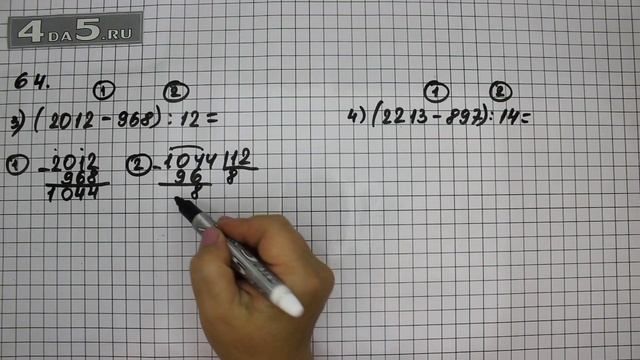 4DA5.RU
64.
① ②
3) (2012 - 968) : 12 =
① - 2012
968
1044
② - 1044 | 12
96 8
8
① ②
4) (2213 - 897) : 14 =